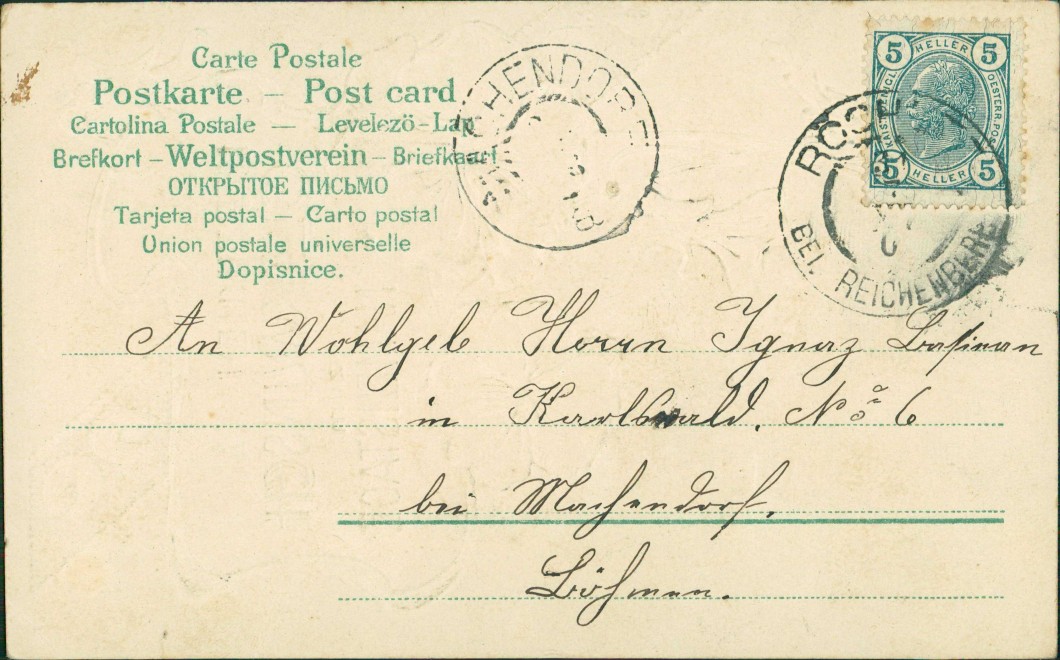 Carte Postale
Postkarte – Post card
Cartolina Postale — Levelező-Lap
Brefkort – Weltpostverein – Briefkaart
ОТКРЫТОЕ ПИСЬМО
Tarjeta postal — Carto postal
Union postale universelle
Dopisnice.
MACHENDORF
5 HELLER 5
5 HELLER 5
BEI. REICHENBERG
An Wohlgeb Herrn Ignaz
in Karlswald. No 6
bei Machendorf.
Böhmen.